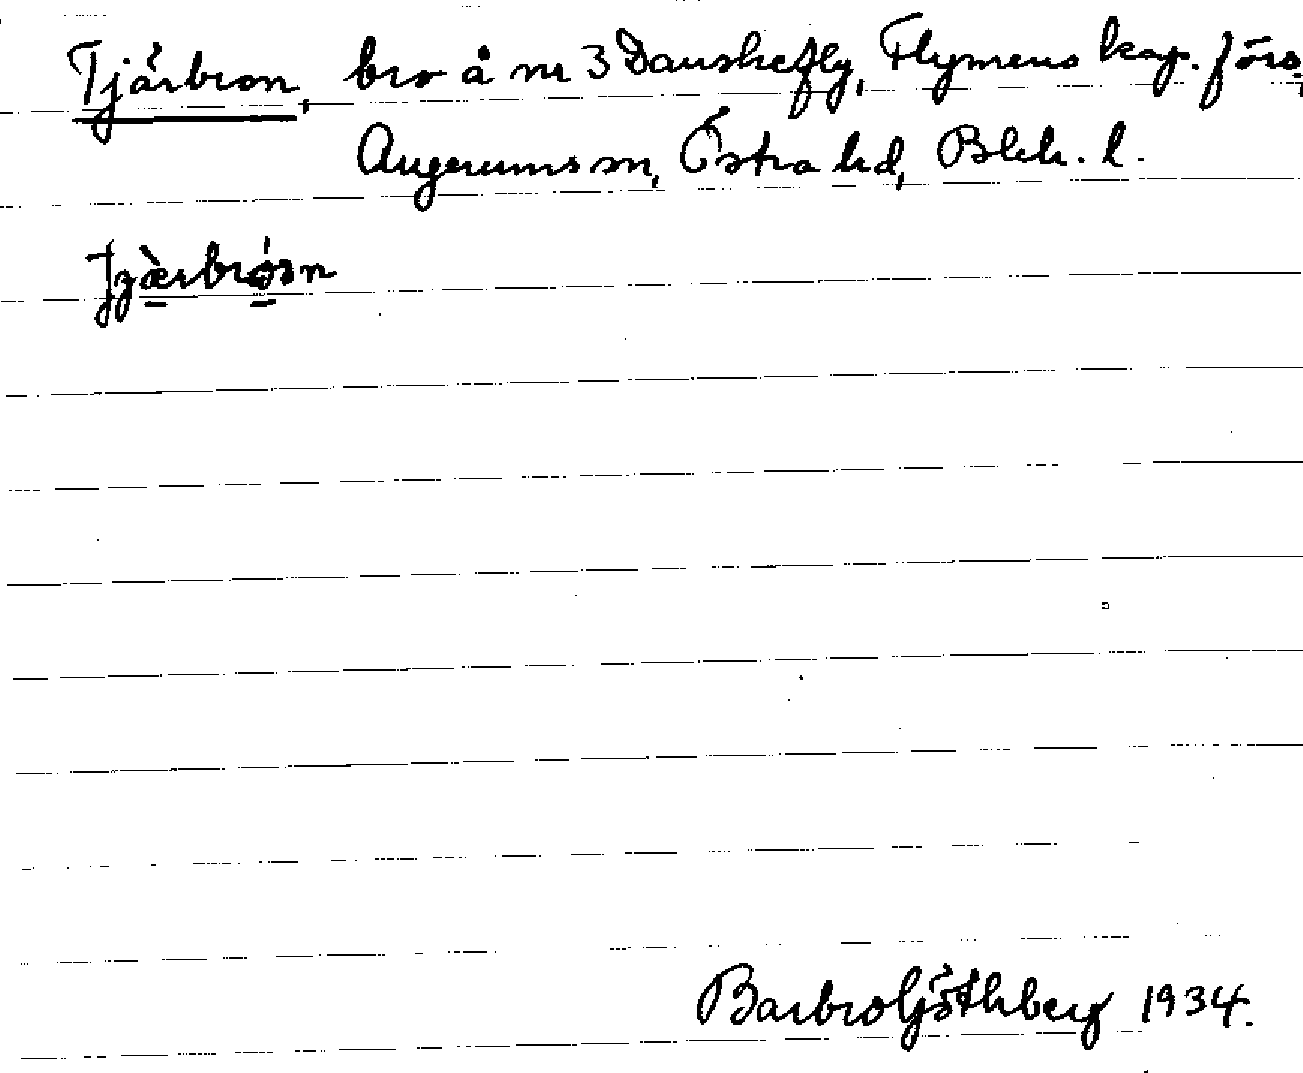 Tjärbron, bro å nr 3 Danskefly, Flymens kap. förs.,
Augerums sn, Östra hd, Blek. l.
Barbro Göthberg 1934.